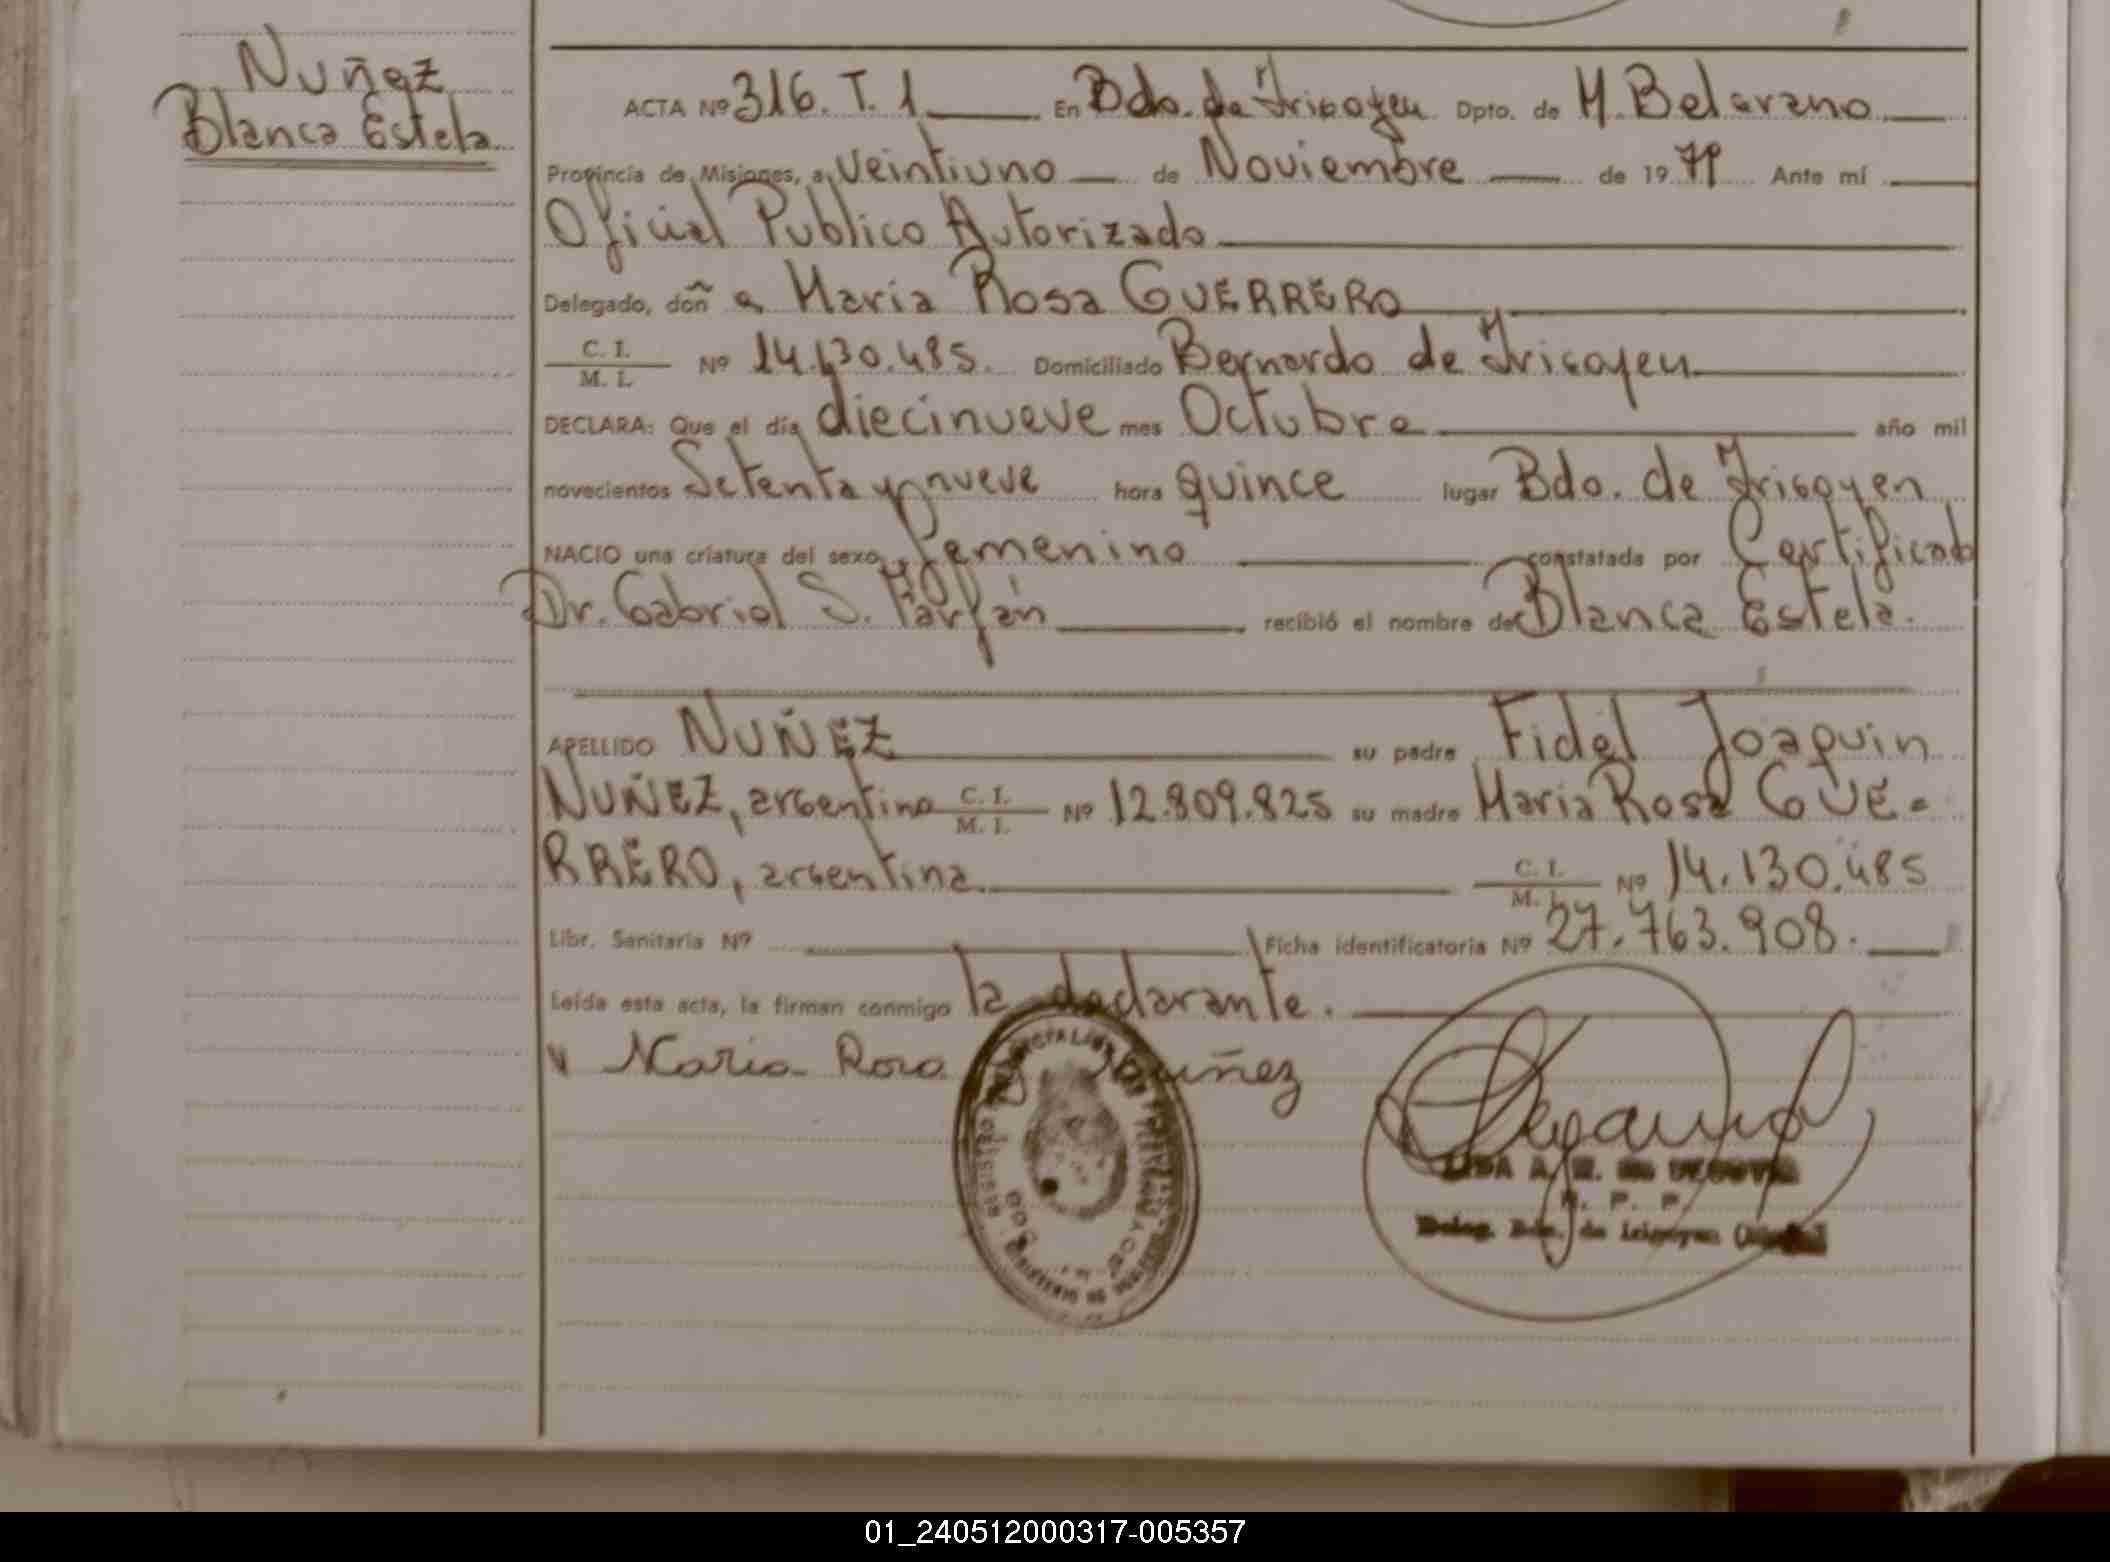 Nuñez
Blanca Estela
ACTA Nº 316. T. 1 En Bdo. de Irigoyen Dpto. de M. Belgrano
Provincia de Misiones, a veintiuno de Noviembre de 1979 Ante mí
Oficial Publico Autorizado
Delegado, doñ a Maria Rosa GUERRERO
C. I.
M. I. Nº 14.130.485. Domiciliado Bernardo de Irigoyen
DECLARA: Que el día diecinueve mes Octubre año mil
novecientos Setenta y nueve hora quince lugar Bdo. de Irigoyen
NACIO una criatura del sexo Femenino constatada por Certificado
Dr. Gabriel S. Farfán recibió el nombre de Blanca Estela.
APELLIDO NUÑEZ su padre Fidel Joaquin
NUÑEZ, argentino C. I. M. I. Nº 12.809.825 su madre Maria Rosa GUE-
RRERO, argentina C. I. M. I. Nº 14.130.485
Libr. Sanitaria Nº Ficha identificatoria Nº 27.763.908.
Leída esta acta, la firman conmigo la declarante.
Maria Rosa G Nuñez
LIDA A. DE SEGOVIA
P. P.
Deleg. Bdo. de Irigoyen
01_240512000317-005357